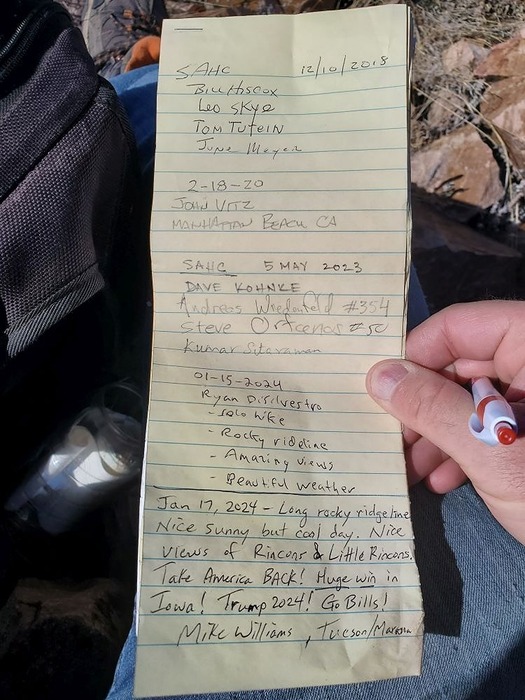 SAHC 12/10/2018
Bill Hiscox
Leo Skye
Tom Tutein
June Meyer
2-18-20
John Vitz
Manhattan Beach CA
SAHC 5 MAY 2023
DAVE KOHNKE
Andreas Wiedenfeld #354
Steve Ortcenos #50
Kumar Sitaraman
01-15-2024
Ryan DiSilvestro
- Solo hike
- Rocky rideline
- Amazing views
- Beautiful weather
Jan 17, 2024 - Long rocky ridgeline
Nice sunny but cool day. Nice
views of Rincons & Little Rincons.
Take America BACK! Huge win in
Iowa! Trump 2024! Go Bills!
Mike Williams, Tucson/Marana